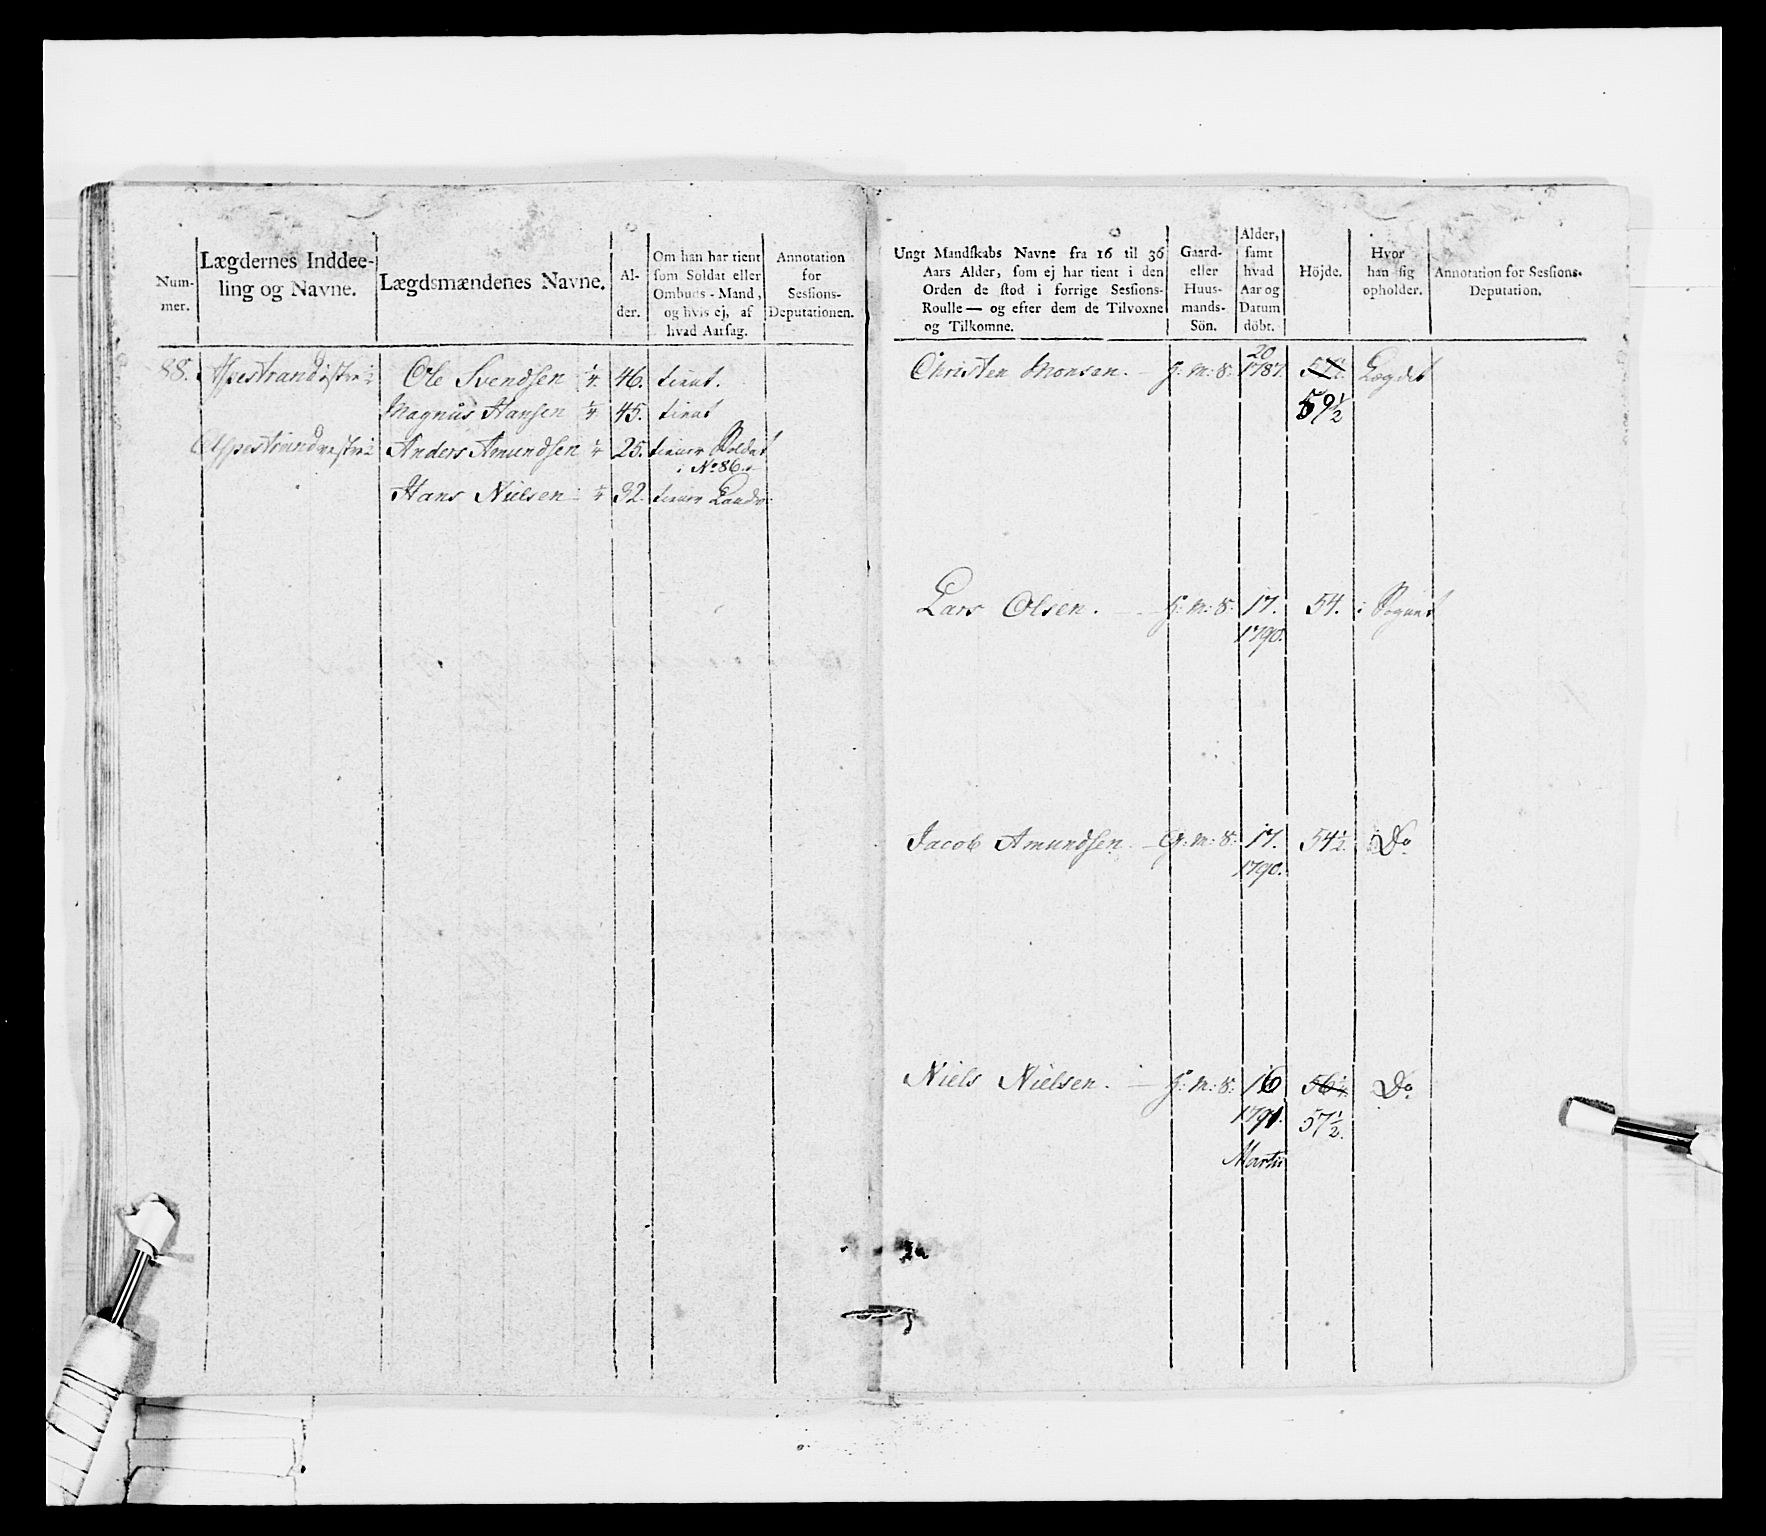 Num-
mer.
Lægdernes Inddee-
ling og Navne.
Lægdsmændenes Navne.
Al-
der.
Om han har tient
som Soldat eller
Ombuds-Mand,
og hvis ej, af
hvad Aarsag.
Annotation
for
Sessions-
Deputationen.
88. Aspestrand østre ½ Ole Svendsen ¼ 46. tient.
Magnus Hansen ¼ 45. tient
Aspestrand vestre ½ Anders Amundsen ¼ 25. tiener Soldat
i No 86.
Hans Nielsen ¼ 32. tiener Landv.
Ungt Mandskabs Navne fra 16 til 36
Aars Alder, som ej har tient i den
Orden de stod i forrige Sessions-
Roulle — og efter dem de Tilvoxne
og Tilkomne.
Gaard-
eller
Huus-
mands-
Sön.
Alder,
samt
hvad
Aar og
Datum
döbt.
Höjde.
Hvor
han sig
opholder.
Annotation for Sessions-
Deputation.
20
Christen Monsen. g: m: s: 1787. Lægdet
59½
Lars Olsen. g: m: s: 17. 54. i Sognet
1790.
Jacob Amundsen G: m: s: 17. 54½. Do
1790.
Niels Nielsen. g: m: s: 16 56½ Do
1791. 57½.
Martii